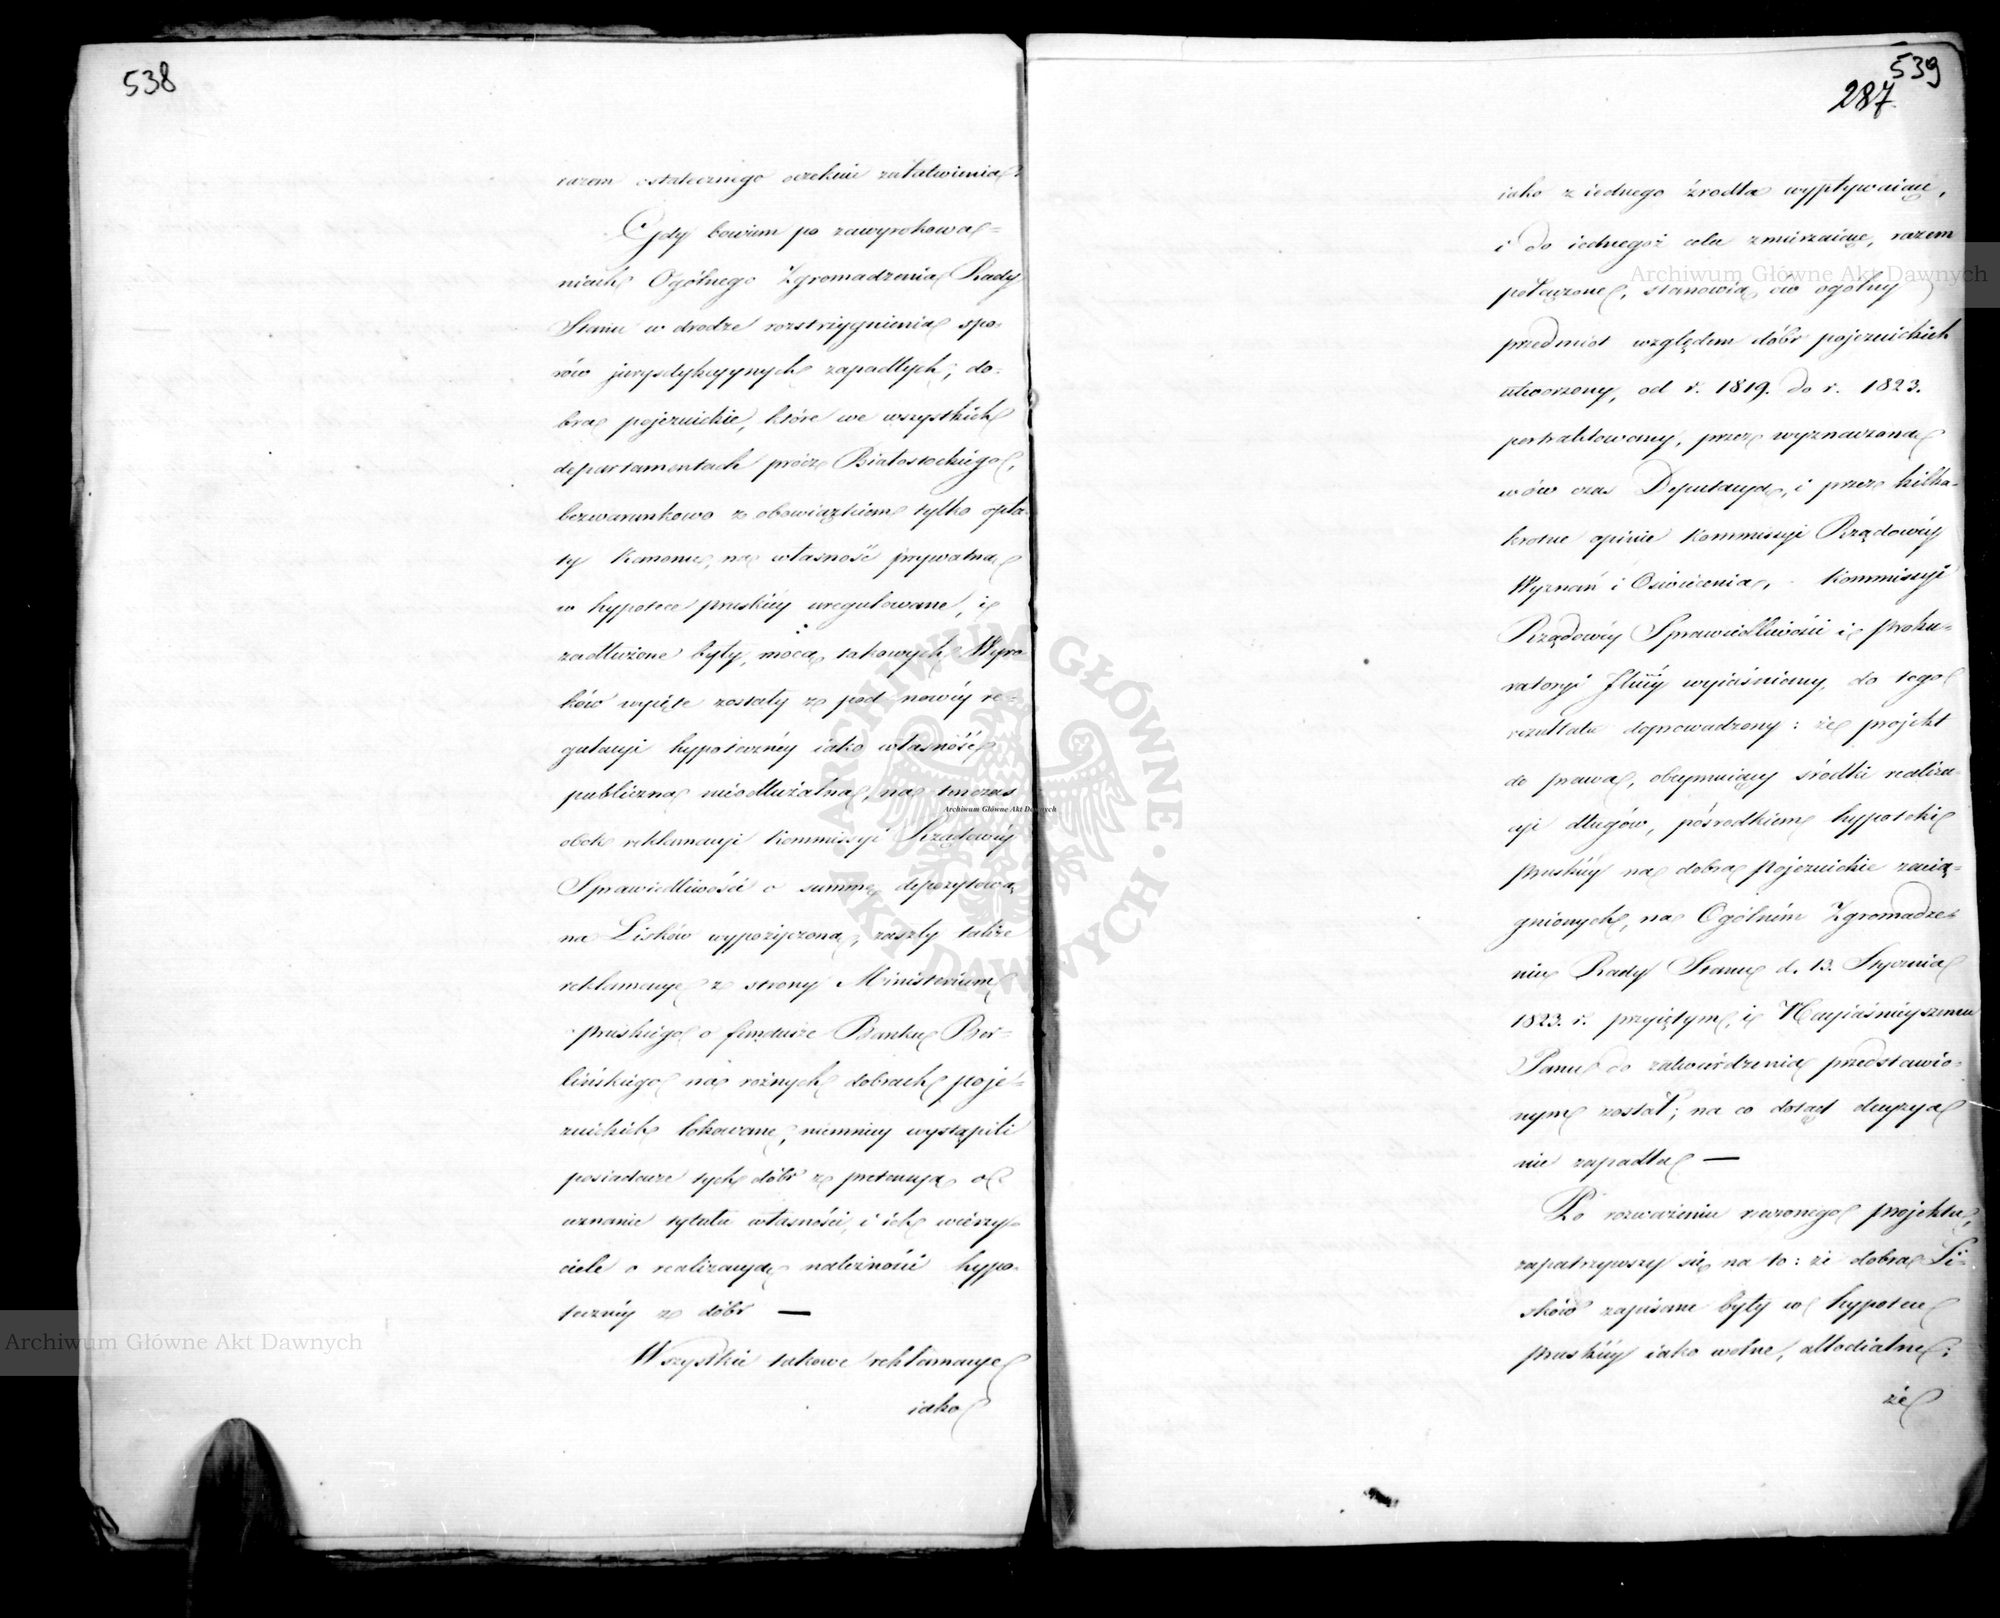 538
razem ostatecznego oczekuie załatwienia:
Gdy bowiem po zawyrokowa=
niach Ogólnego Zgromadzenia Rady
Stanu w drodze rozstrzygnienia spo-
rów jurysdykcyynych zapadłych; do-
bra pojezuickie, które we wszystkich
departamentach prócz Białostockiego,
bezwarunkowo z obowiązkiem tylko opła-
ty Kanonu, na własność prywatną
w hypotece pruskiéy uregulowane, i
zadłużone były, mocą takowych Wyro
ków wyięte zostały z pod nowéy re-
gulacyi hypotecznéy iako własność
publiczna nieodłużalna, na tenczas
obok reklamacyi Kommissyi Rządowéy
Sprawiedliwości o summę depozytową
na Lisków wypożyczoną, zaszły także
reklamacye z strony Ministerium
Pruskiego o fundusze Banku Ber-
lińskiego na rożnych dobrach poje-
zuickich lokowane, niemniey wystąpili
posiadacze tych dóbr z pretensyą o
uznanie tytułu własności, i ich wierzy-
ciele o realizacyą należności hypo-
teczney z dóbr —
Wszystkie takowe reklamacye
iako
539
287
iako z iednego źrodła wypływaiące,
i do iednegoż celu zmierzaiące, razem
połączone, stanowią ów ogólny
przedmiot względem dóbr pojezuickich
utworzony, od r. 1819. do r. 1823.
pertraktowany, przez wyznaczoną
wów czas Deputacyą, i przez kilka-
krotne opinie Kommissyi Rządowéy
Wyznań i Oświecenia, Kommissyi
Rządowéy Sprawiedliwości i Proku-
ratoryi Jlnéy wyiaśniony, do tego
rezultatu doprowadzony: że projekt
do prawa, obeymuiący środki realiza-
cyi długów, pośrednictwem hypoteki
Pruskiéy na dobra Pojezuickie zacią-
gnionych, na Ogólném Zgromadze-
niu Rady Stanu d. 13. Stycznia
1823. r. przyiętym, i Nayiaśnieyszemu
Panu do zatwierdzenia przedstawio-
nym został; na co dotąd decyzya
nie zapadła —
Po rozważeniu rzeczonego projektu,
zapatrzywszy się na to: że dobra Li-
sków zapisane były w hypotece
Pruskiéy iako wolne, allodialne;
że
Archiwum Główne Akt Dawnych
Archiwum Główne Akt Dawnych
Archiwum Główne Akt Dawnych
ARCHIWUM GŁÓWNE · AKT DAWNYCH ·